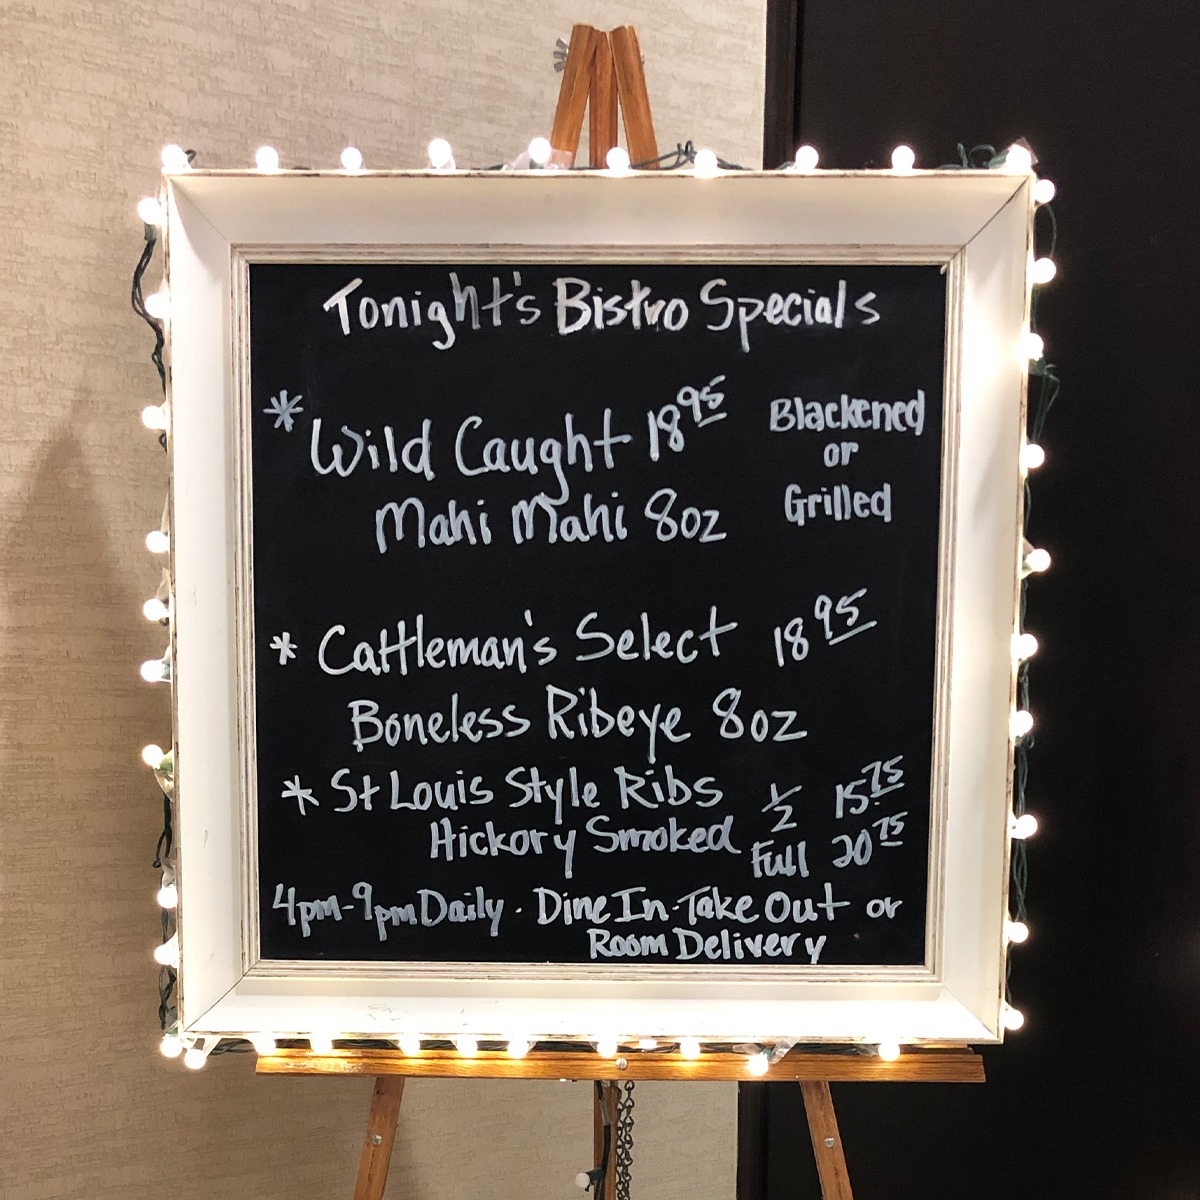 Tonight's Bistro Specials
* Wild Caught 18 95 Blackened
or
Mahi Mahi 8oz Grilled
* Cattleman's Select 18 95
Boneless Ribeye 8oz
* St Louis Style Ribs 1/2 15.75
Hickory Smoked Full 20 75
4pm-9pm Daily · Dine In-Take Out or
Room Delivery